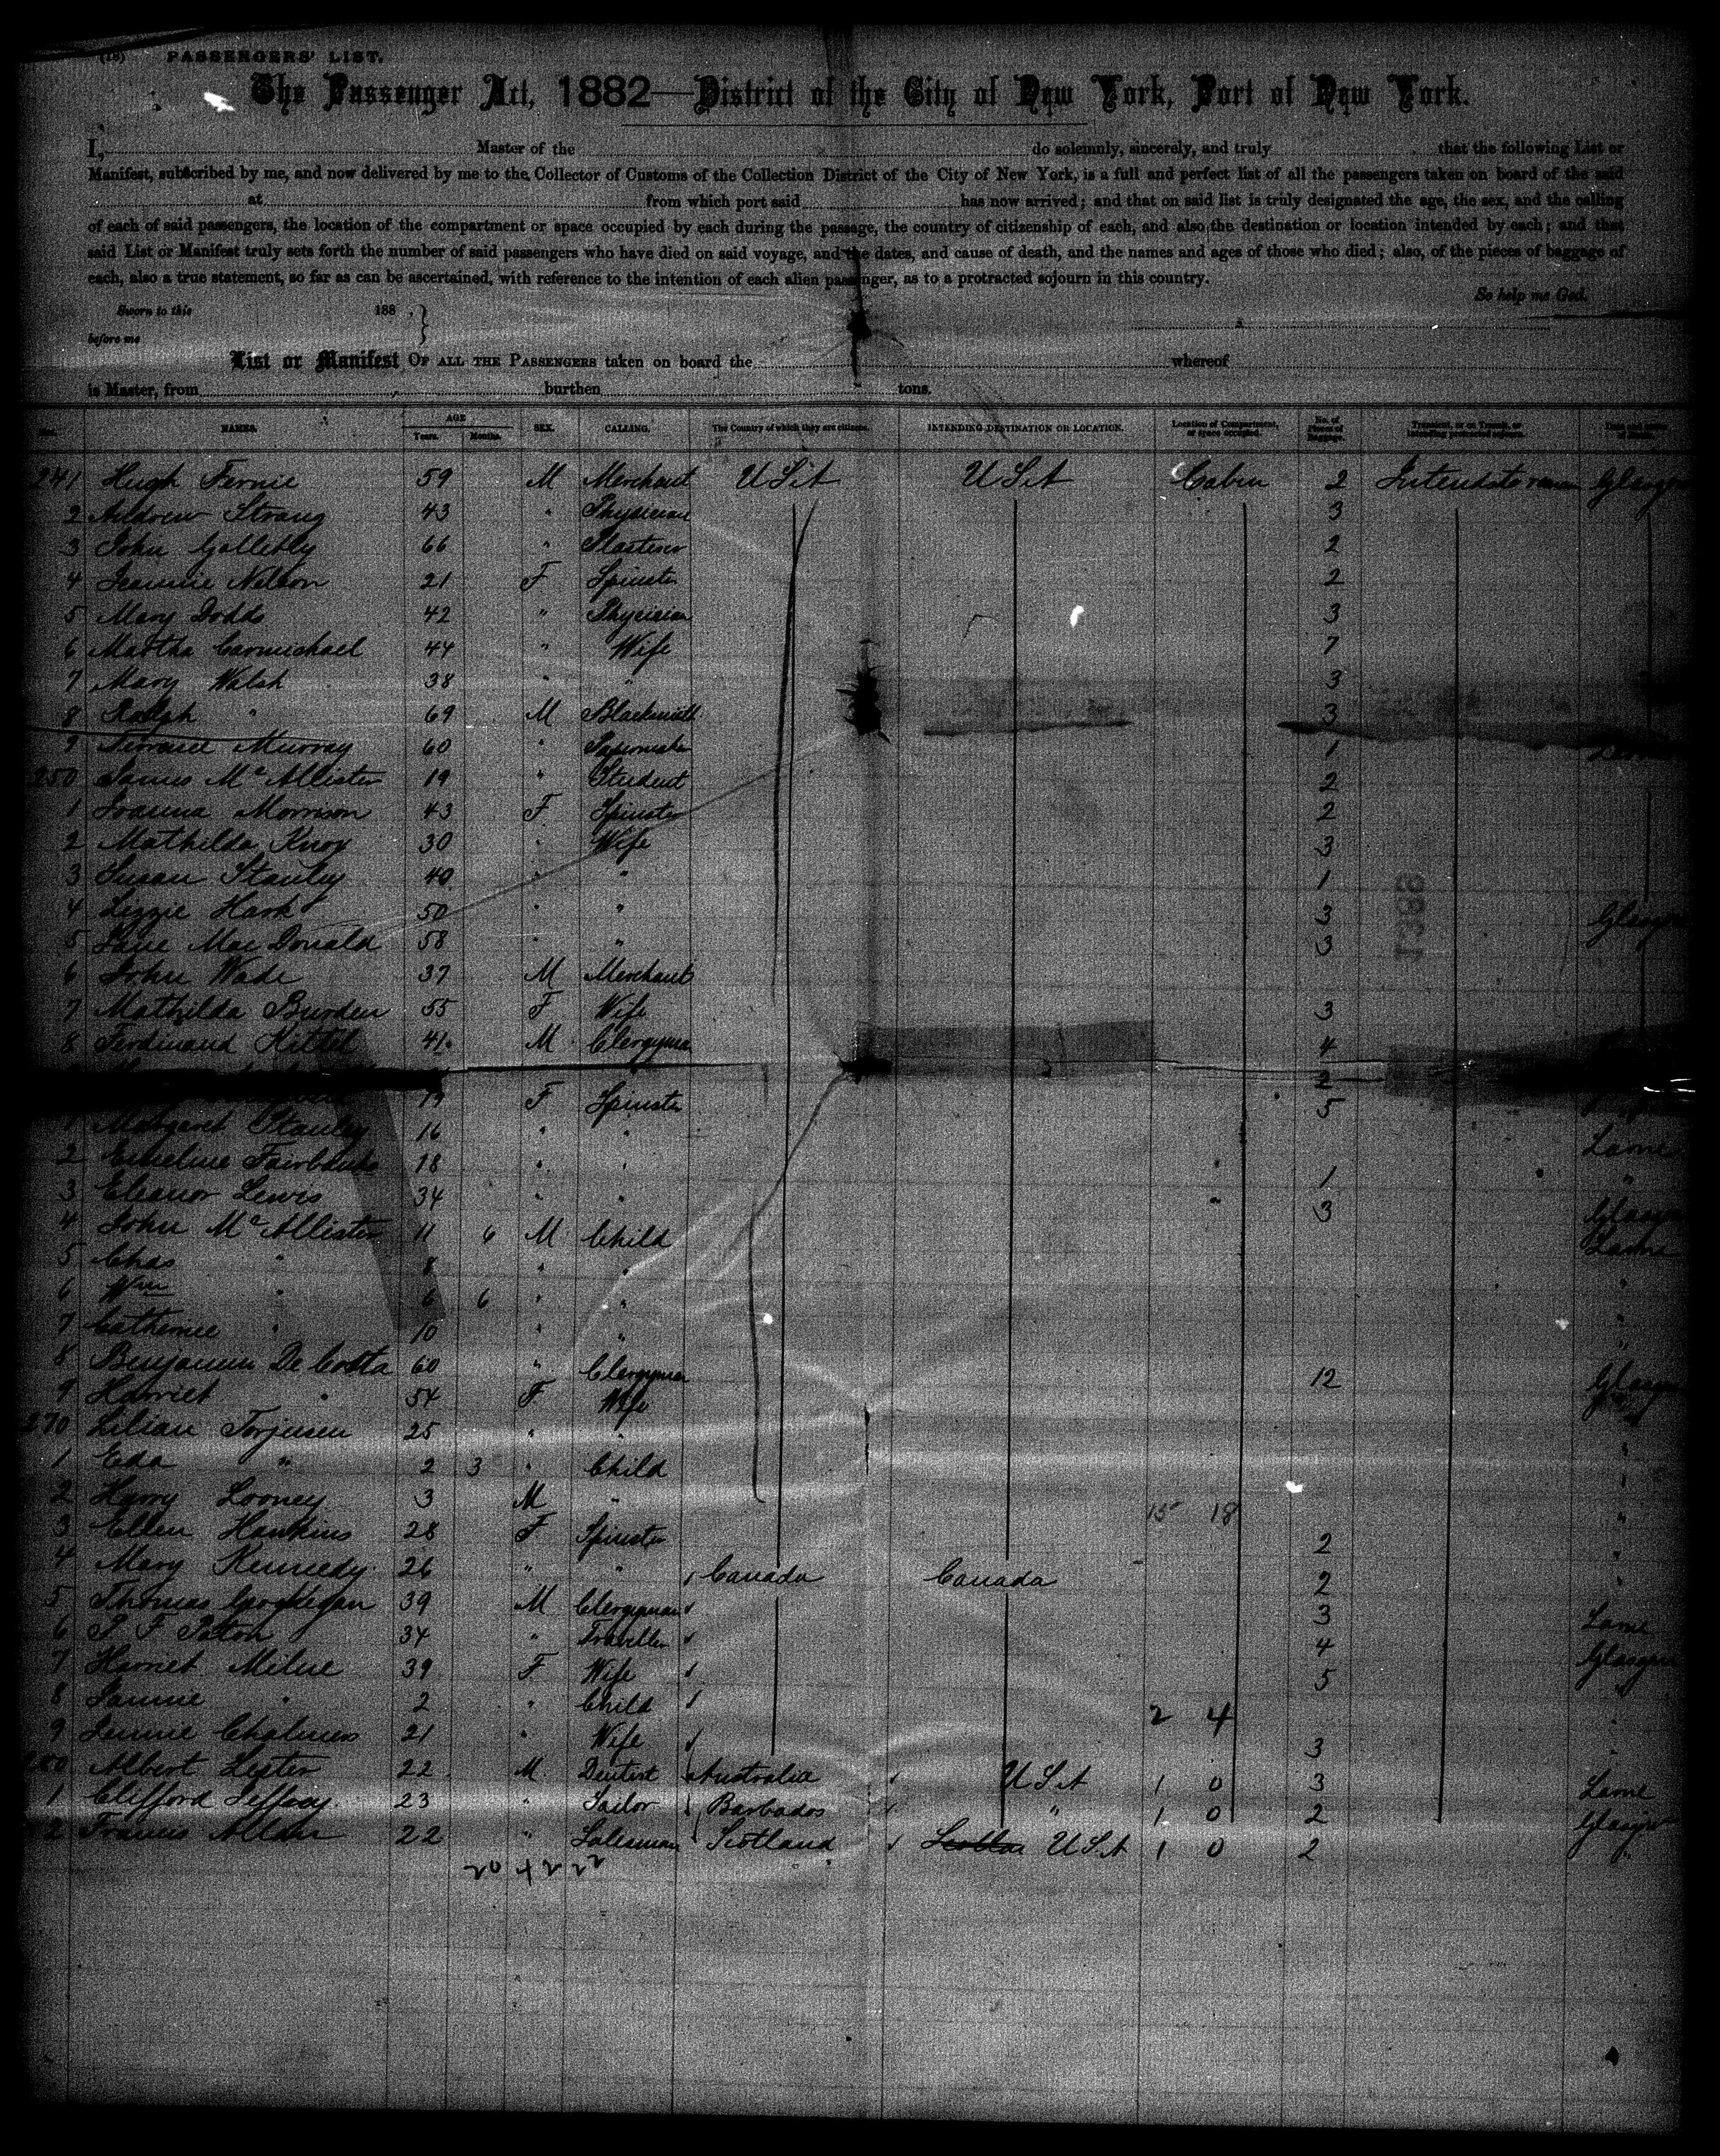 (18) PASSENGERS' LIST.
The Passenger Act, 1882—District of the City of New York, Port of New York.
I, Master of the do solemnly, sincerely, and truly that the following List or
Manifest, subscribed by me, and now delivered by me to the Collector of Customs of the Collection District of the City of New York, is a full and perfect list of all the passengers taken on board of the said
at from which port said has now arrived; and that on said list is truly designated the age, the sex, and the calling
of each of said passengers, the location of the compartment or space occupied by each during the passage, the country of citizenship of each, and also the destination or location intended by each; and that
said List or Manifest truly sets forth the number of said passengers who have died on said voyage, and the dates, and cause of death, and the names and ages of those who died; also, of the pieces of baggage of
each, also a true statement, so far as can be ascertained, with reference to the intention of each alien passenger, as to a protracted sojourn in this country.
So help me God.
Sworn to this 188 , }
before me
List or Manifest OF ALL THE PASSENGERS taken on board the whereof
is Master, from burthen tons.
Nos. NAMES. AGE Years. Months. SEX. CALLING. The Country of which they are citizens. INTENDING DESTINATION OR LOCATION. Location of Compartment, or space occupied. No. of Pieces of Baggage. Transient, or in Transit, or intending protracted sojourn.
241 Hugh Fernie 59 M Merchant USA USA Cabin 2 Glasgow
2 Andrew Strang 43 " Physician 3
3 John Golletly 66 " Plasterer 2
4 Jeannie Nelson 21 F Spinster 2
5 Mary Dodds 42 " Physician 3
6 Martha Carmichael 44 " Wife 7
7 Mary Walsh 38 " " 3
8 " 69 M Blacksmith 3
9 Murray 60 " Papermaker 1
250 James McAllister 19 " Student 2
1 Joanna Morrison 43 F Spinster 2
2 Mathilda Knox 30 " Wife 3
3 Susan Stanley 40 " " 1
4 Lizzie Hark 50 " " 3 Glasgow
5 Jane MacDonald 58 " " 3
6 John Wade 37 M Merchant
7 Mathilda Burden 55 F Wife 3
8 Ferdinand Kittel 41 M Clergyman 4
2
19 F Spinster 5
1 Margaret Stanley 16 " " Larne
2 Emeline Fairbanks 18 " " 1 "
3 Eleanor Lewis 34 " " 3 Glasgow
4 John McAllister 11 6 M Child Larne
5 Chas " 8 " " "
6 Wm " 6 6 " " "
7 Catherine " 10 " " "
8 Benjamin De Costa 60 " Clergyman 12 Glasgow
9 Harriet " 54 F Wife
270 Lilian Torjusen 25 " " "
1 Eda " 2 3 " Child
2 Harry Looney 3 M " 15 18 "
3 Ellen Hawkins 28 F Spinster 2 "
4 Mary Kennedy 26 " " Canada Canada 2 "
5 Thomas Geoghegan 39 M Clergyman 3 Larne
6 P F Paton 34 " Traveller 4 Glasgow
7 Harriet Milne 39 F Wife 5
8 " 2 " Child 2 4
9 Jennie Chalmers 21 " Wife 3
280 Albert Lester 22 M Dentist Australia USA 1 0 3 Larne
1 Clifford Jeffrey 23 " Sailor Barbados " 1 0 2 Glasgow
2 Francis Allan 22 " Salesman Scotland USA 1 0 2 "
20 + 2 22